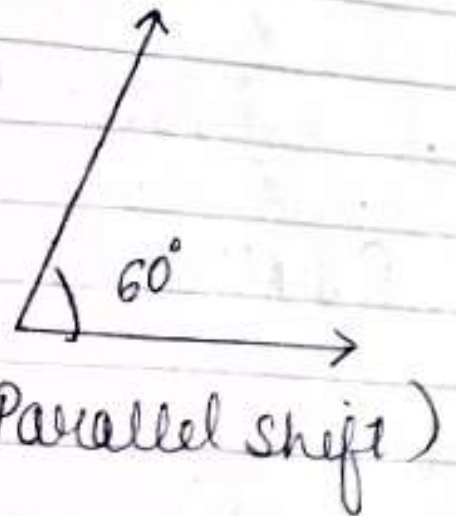 60°
Parallel shift)